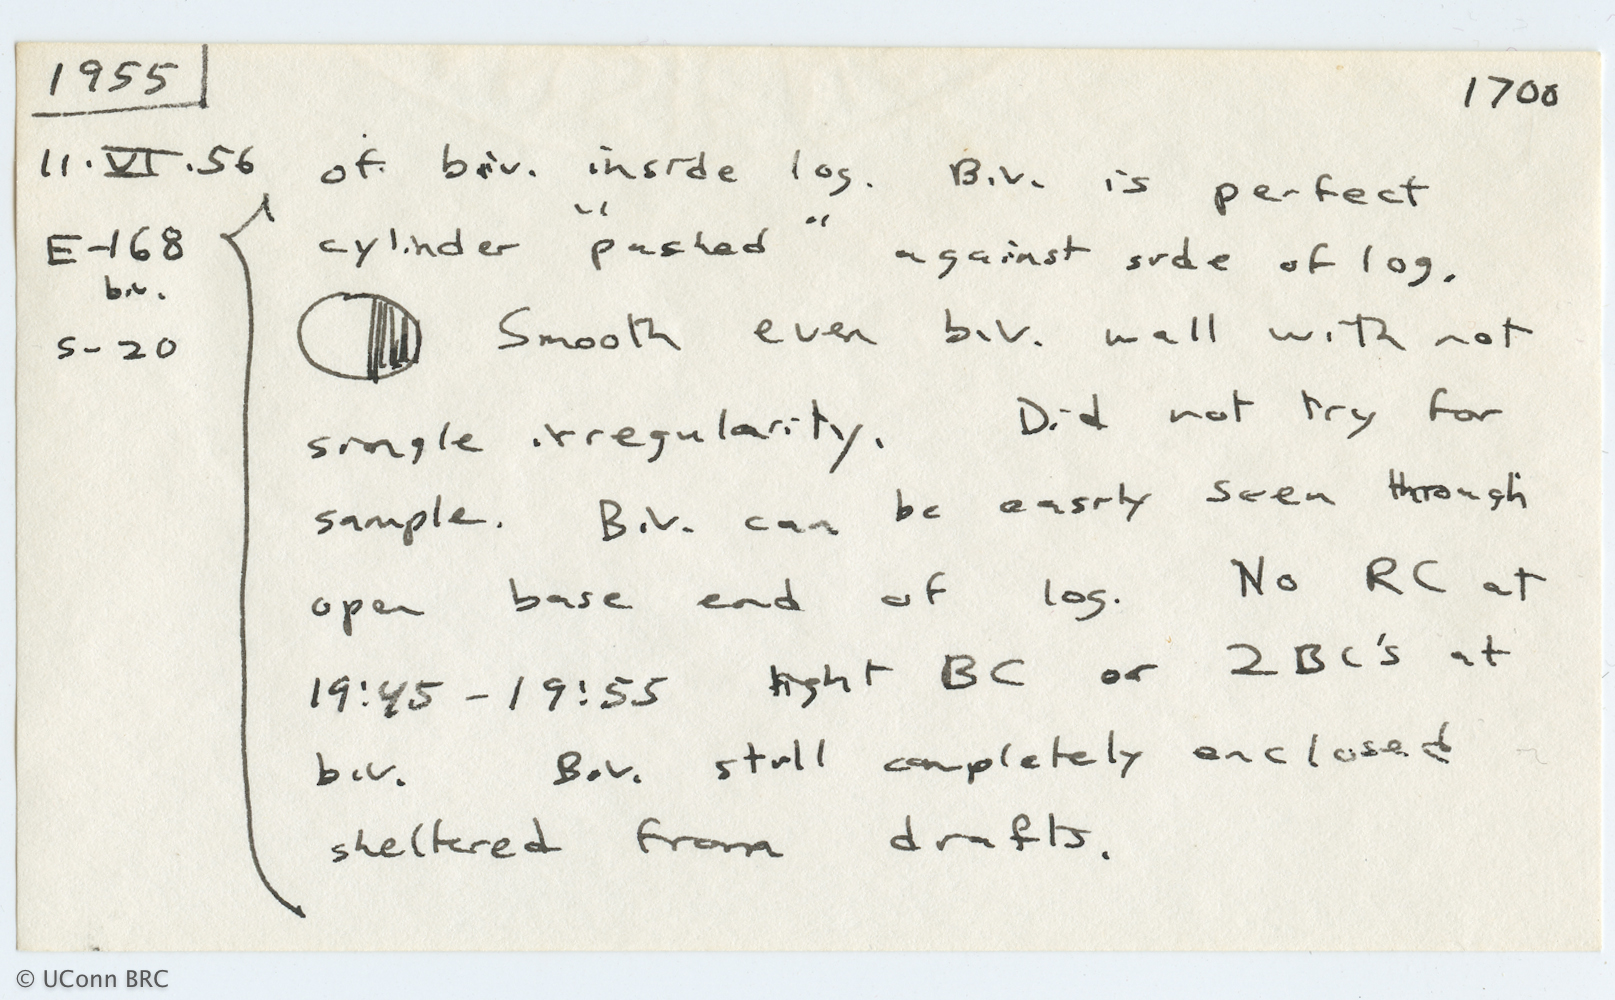 1955
1700
11.VI.56 of biv. inside log. B.v. is perfect
E-168 cylinder "pushed" against side of log.
biv.
S-20 Smooth even biv. wall with not
single irregularity. Did not try for
sample. B.v. can be easily seen through
open base end of log. No RC at
19:45-19:55 tight BC or 2 BC's at
biv. B.v. still completely enclosed
sheltered from drafts.
© UConn BRC